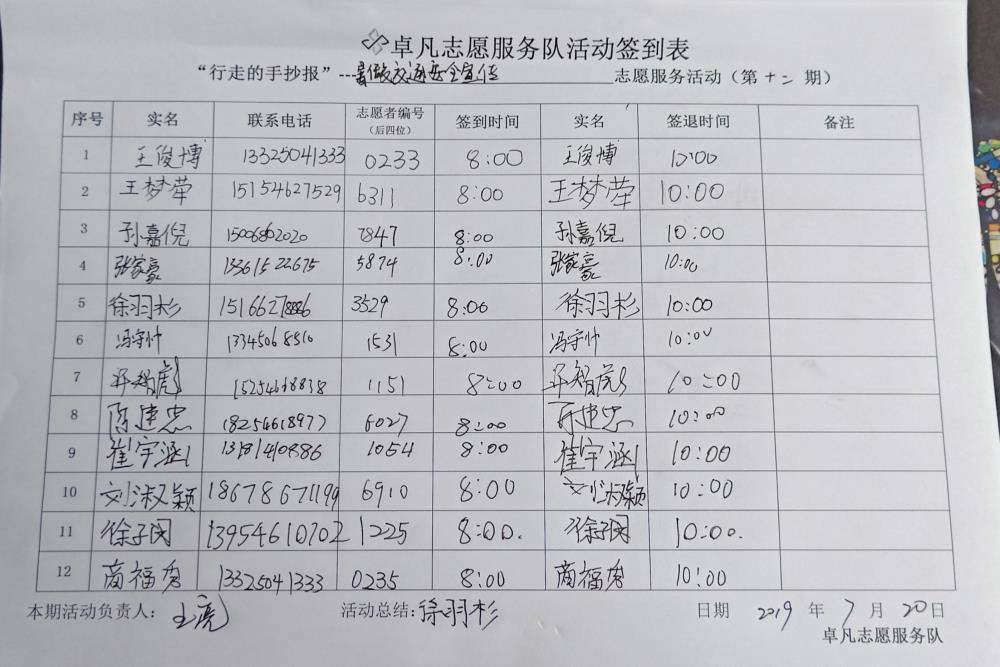 卓凡志愿服务队活动签到表
“行走的手抄报”---暑假交通安全宣传 志愿服务活动（第十二期）
序号 实名 联系电话 志愿者编号（后四位） 签到时间 实名 签退时间 备注
1 王俊博 13325041333 0233 8:00 王俊博 10:00
2 王梦荦 15154627529 6311 8:00 王梦荦 10:00
3 孙嘉倪 7847 8:00 孙嘉倪 10:00
4 张家豪 13361522675 5874 8:00 张家豪 10:00
5 徐羽杉 3529 8:00 徐羽杉 10:00
6 冯宇帅 13345068810 1531 8:00 冯宇帅 10:00
7 智彪 15254668838 1151 8:00 智彪 10:00
8 陈建忠 18254618977 6027 8:00 陈建忠 10:00
9 崔宇涵 1054 8:00 崔宇涵 10:00
10 刘淑颖 18678671199 6910 8:00 刘淑颖 10:00
11 徐子闵 13954610702 1225 8:00. 徐子闵 10:00.
12 商福秀 13325041333 0235 8:00 商福秀 10:00
本期活动负责人：王亮 活动总结:徐羽杉 日期 2019 年 7 月 20 日
卓凡志愿服务队